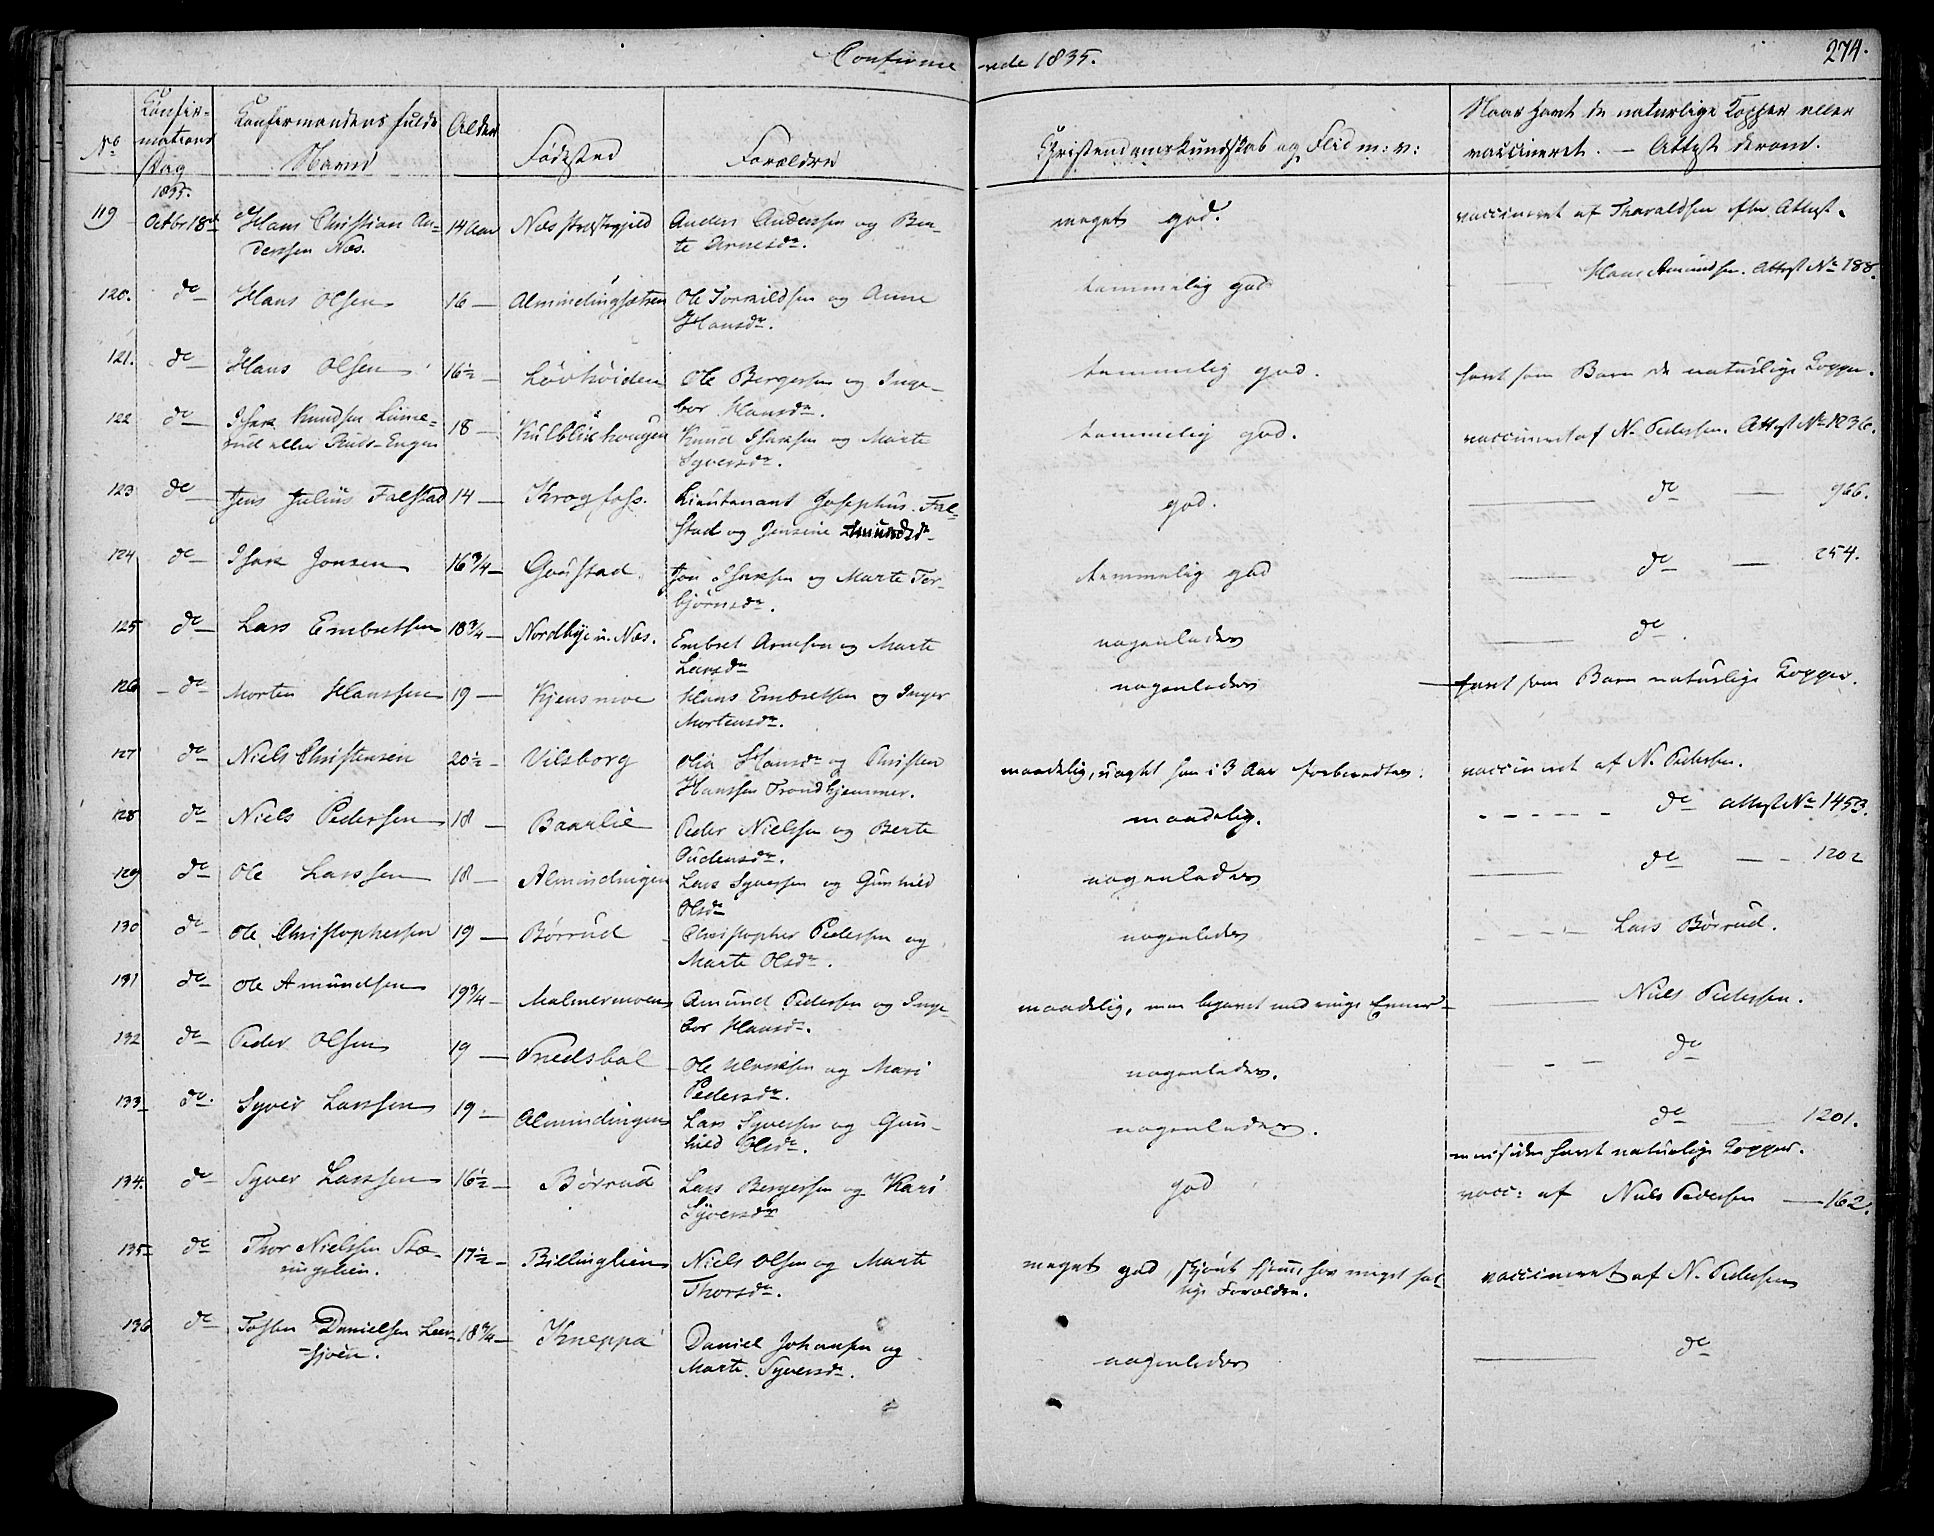 Confirme rede 1835. 274.
No Konfirmations Dag Konfirmandens fulde Navn Alder Fødested Forældre Christendomskundskab og Flid m: v: Naar havt de naturlige Kopper eller vaccineret. — Attest derom.
1835.
119 Octbr 18de Hans Christian An- 14 Aar Næs Præstegjeld Anders Anderssen og Ber- meget god. vaccineret af Tharaldsen efter Attest.
derssen Næs. te Arnesdr.
120. do Hans Olsen 16 — Almindingsætren Ole Torkildsen og Anne temmelig god Hans Amundsen. Attest No 188.
Hansdr.
121. do Hans Olsen 16½ — Løvhøiden Ole Bergersen og Inge- temmelig god. havt som Barn de naturlige Kopper.
bor Hansdr.
122 do Isak Knudsen 18 — Kulblikhougen Knud Isaksen og Marte temmelig god. vaccineret af N. Pedersen. Attest No 1236.
rud eller Ruds-Engen Syversdr.
123 do Jens Julius Falstad 14 — Krogfoss. Lieutenant Josephus Fal- god. do — 966.
stad og Jensine Amundsdr
124 do Isak Jonsen 16¾ — Goustad Jon Isaksen og Marte Tor- temmelig god do — 254.
bjørnsdr.
125 do Lars Embretsen 18¾ — Nordbye i Næs. Embret Arnesen og Marte nogenledes do.
Larsdr
126 do Morten Hanssen 19 — Kjensmoe Hans Embretsen og Inger nogenledes havt som Barn naturlige Kopper.
Mortensdr.
127 do Niels Christensen 20½ — Vilsborg Olia Hansdr og Christen maadelig, uagtet han i 3 Aar forberedtes. vaccineret af N. Pedersen.
Hanssen Trondhjemmer.
128 do Niels Pedersen 18 — Baarlie Peder Nielsen og Berte maadelig. do Attest No 1453.
Oudensdr.
129 do Ole Larssen 18 — Almindingen Lars Syversen og Gunhild nogenledes do — 1202
Olsdr
130 do Ole Christophersen 19 — Børrud Christopher Pedersen og nogenledes Lars Børrud.
Marte Olsdr.
131 do Ole Amundsen 19¾ — Malmermoen Amund Pedersen og Inge- maadelig, men begavet med ringe Niels Pedersen.
bor Hansdr.
132 do Peder Olsen 19 — Ole Ulriksen og Mari nogenledes. do
Pedersdr.
133 do Syver Larssen 19 — Almindingen Lars Syversen og Gun- nogenledes. do — 1201.
hild Olsdr.
havt naturlige Kopper.
134. do Syver Larssen 16½ — Børrud Lars Bergersen og Kari god vacc: af Niels Pedersen — 162.
Syversdr
135 do Thor Nielsen Stæ- 17½ — Billinglien Niels Olsen og Marte meget god, skjønt han har meget fat- vaccineret af N. Pedersen
ringslien. Thorsdr. tige Forældre.
136 do Tosten Danielsen Leer- 18¾ — Kneppa Daniel Johansen og nogenledes do
sjøen. Marte Syversdr.